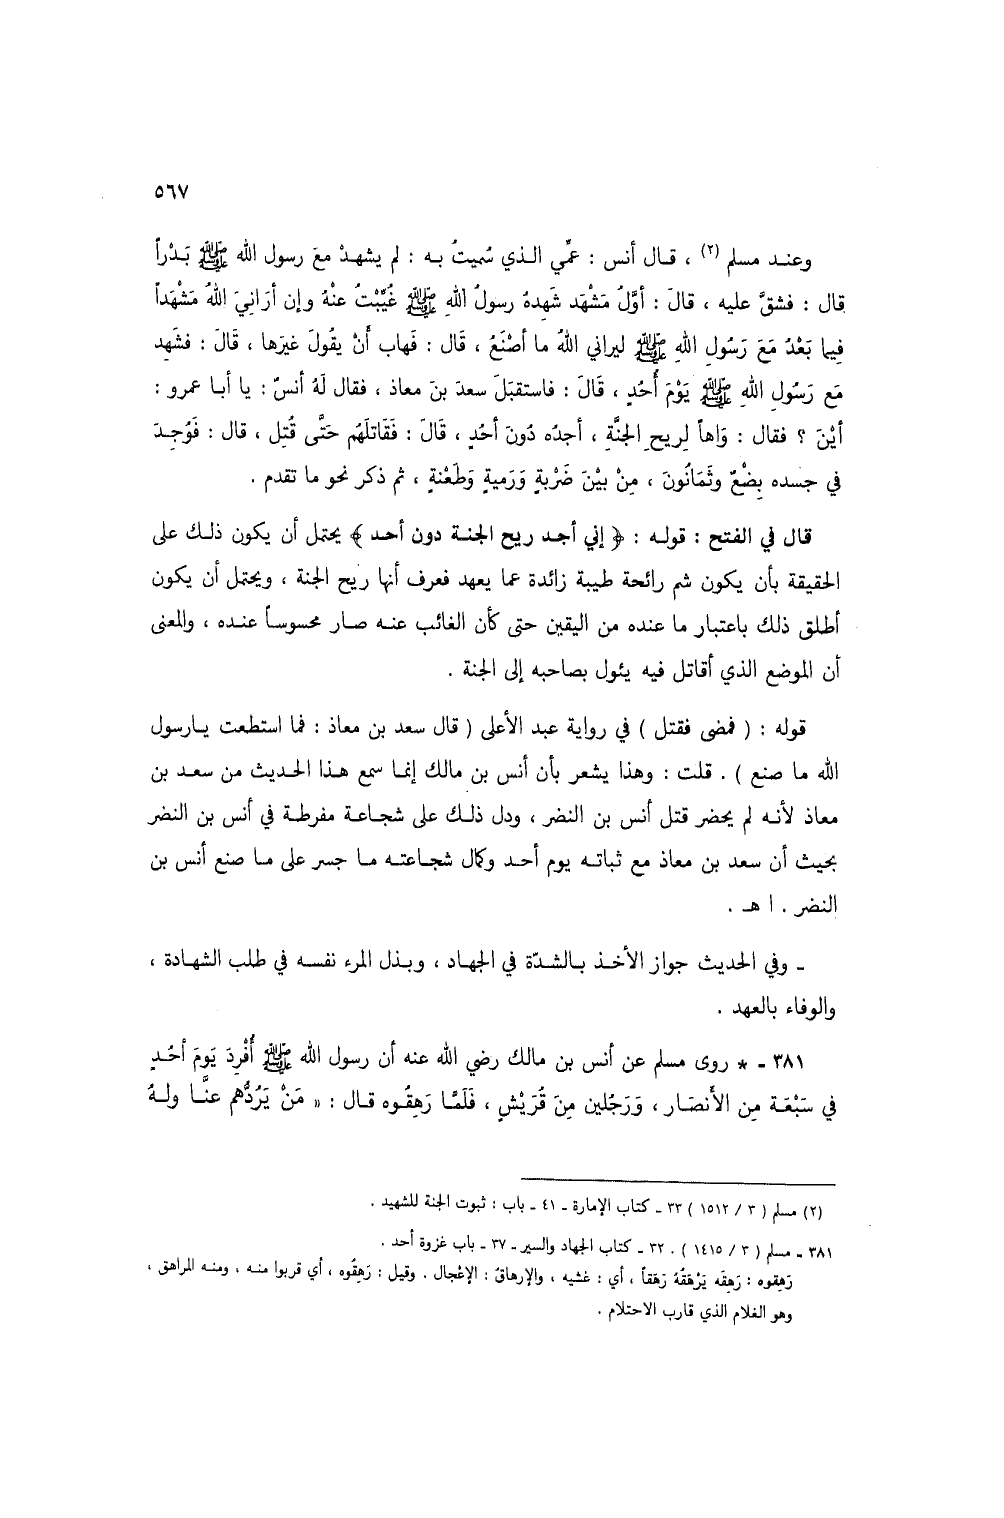 ٥٦٧
وعنـد مسلم (٢) ، قـال أنس : عمِّي الـذي سُميتُ بـه : لم يشهدْ معَ رسول الله ﷺ بَـدْراً
قال : فشقَّ عليه ، قالَ : أوَّلُ مَشْهَد شَهِدهُ رسولُ اللهِ ﷺ غُيِّبْتُ عنْهُ وإن أرَانِيَ اللهُ مَشْهَداً
فيما بَعْدُ مَعَ رَسُولِ اللهِ ﷺ ليراني اللهُ ما أصْنَعُ ، قَال : فَهاب أَنْ يقُولَ غيرَها ، قَالَ : فشَهِد
مَع رَسُولِ اللهِ ﷺ يَوْمَ أُحُدٍ ، قَالَ : فاستقبَلَ سعدَ بنَ معاذ ، فقال لَهُ أنسٌ : يا أبـا عمرو :
أيْنَ ؟ فقال : وَاهاً لِريحِ الجنَّةِ ، أجدُه دُونَ أحُدٍ ، قَالَ : فَقَاتلَهُم حَتَّى قُتِل ، قال : فَوُجِـدَ
في جسده بِضْعٌ وثَمَانُونَ ، مِنْ بيْنَ ضَرْبةٍ وَرَميةٍ وَطَعْنةٍ ، ثم ذكر نحو ما تقدم .
قال في الفتح : قولـه : ﴿ إني أجـد ريح الجنـة دون أحـد ﴾ يحتمل أن يكون ذلـك على
الحقيقة بأن يكون شم رائحة طيبة زائدة عما يعهد فعرف أنها ريح الجنة ، ويحتمل أن يكون
أطلق ذلك باعتبار ما عنده من اليقين حتى كأن الغائب عنـه صـار محسوسـاً عنـده ، والمعنى
أن الموضع الذي أقاتل فيه يئول بصاحبه إلى الجنة .
قوله : ( فمضى فقتل ) في رواية عبد الأعلى ( قال سعد بن معاذ : فما استطعت يـارسول
الله ما صنع ) . قلت : وهذا يشعر بأن أنس بن مالك إنمـا سمع هـذا الحـديث من سعـد بن
معاذ لأنـه لم يحضر قتل أنس بن النضر ، ودل ذلـك على شجـاعـة مفرطـة في أنس بن النضر
بحيث أن سعد بن معاذ مع ثباتـه يوم أحـد وكمال شجاعتـه مـا جسر على مـا صنع أنس بن
النضر . ا هـ .
ـ وفي الحديث جواز الأخـذ بـالشدّة في الجهاد ، وبـذل المرء نفسـه في طلب الشهـادة ،
والوفاء بالعهد .
٣٨١ ـ * روى مسلم عن أنس بن مالك رضي الله عنه أن رسول الله ﷺ أُفْرِدَ يَومَ أحُـدٍ
في سَبْعَـة مِن الأَنصَـار ، وَرَجُلين مِنَ قُرَيْشٍ ، فَلَمَّـا رَهِقُـوه قـال : « مَنْ يَرُدُّهُم عنَّـا ولـهُ
(٢) مسلم ( ٣ / ١٥١٢ ) ٣٣ ـ كتاب الإمارة ـ ٤١ ـ باب : ثبوت الجنة للشهيد .
٣٨١ ـ مسلم ( ٣ / ١٤١٥ ) . ٣٢ ـ كتاب الجهاد والسير ـ ٣٧ ـ باب غزوة أحد .
رَهِقوه : رَهِقَه يَرْهَقُهُ رَهَقاً ، أي : غشيه ، والإرهاقُ : الإعْجال . وقيل : رَهِقُوه ، أي قربوا منـه ، ومنـه المراهق ،
وهو الغلام الذي قارب الاحتلام .